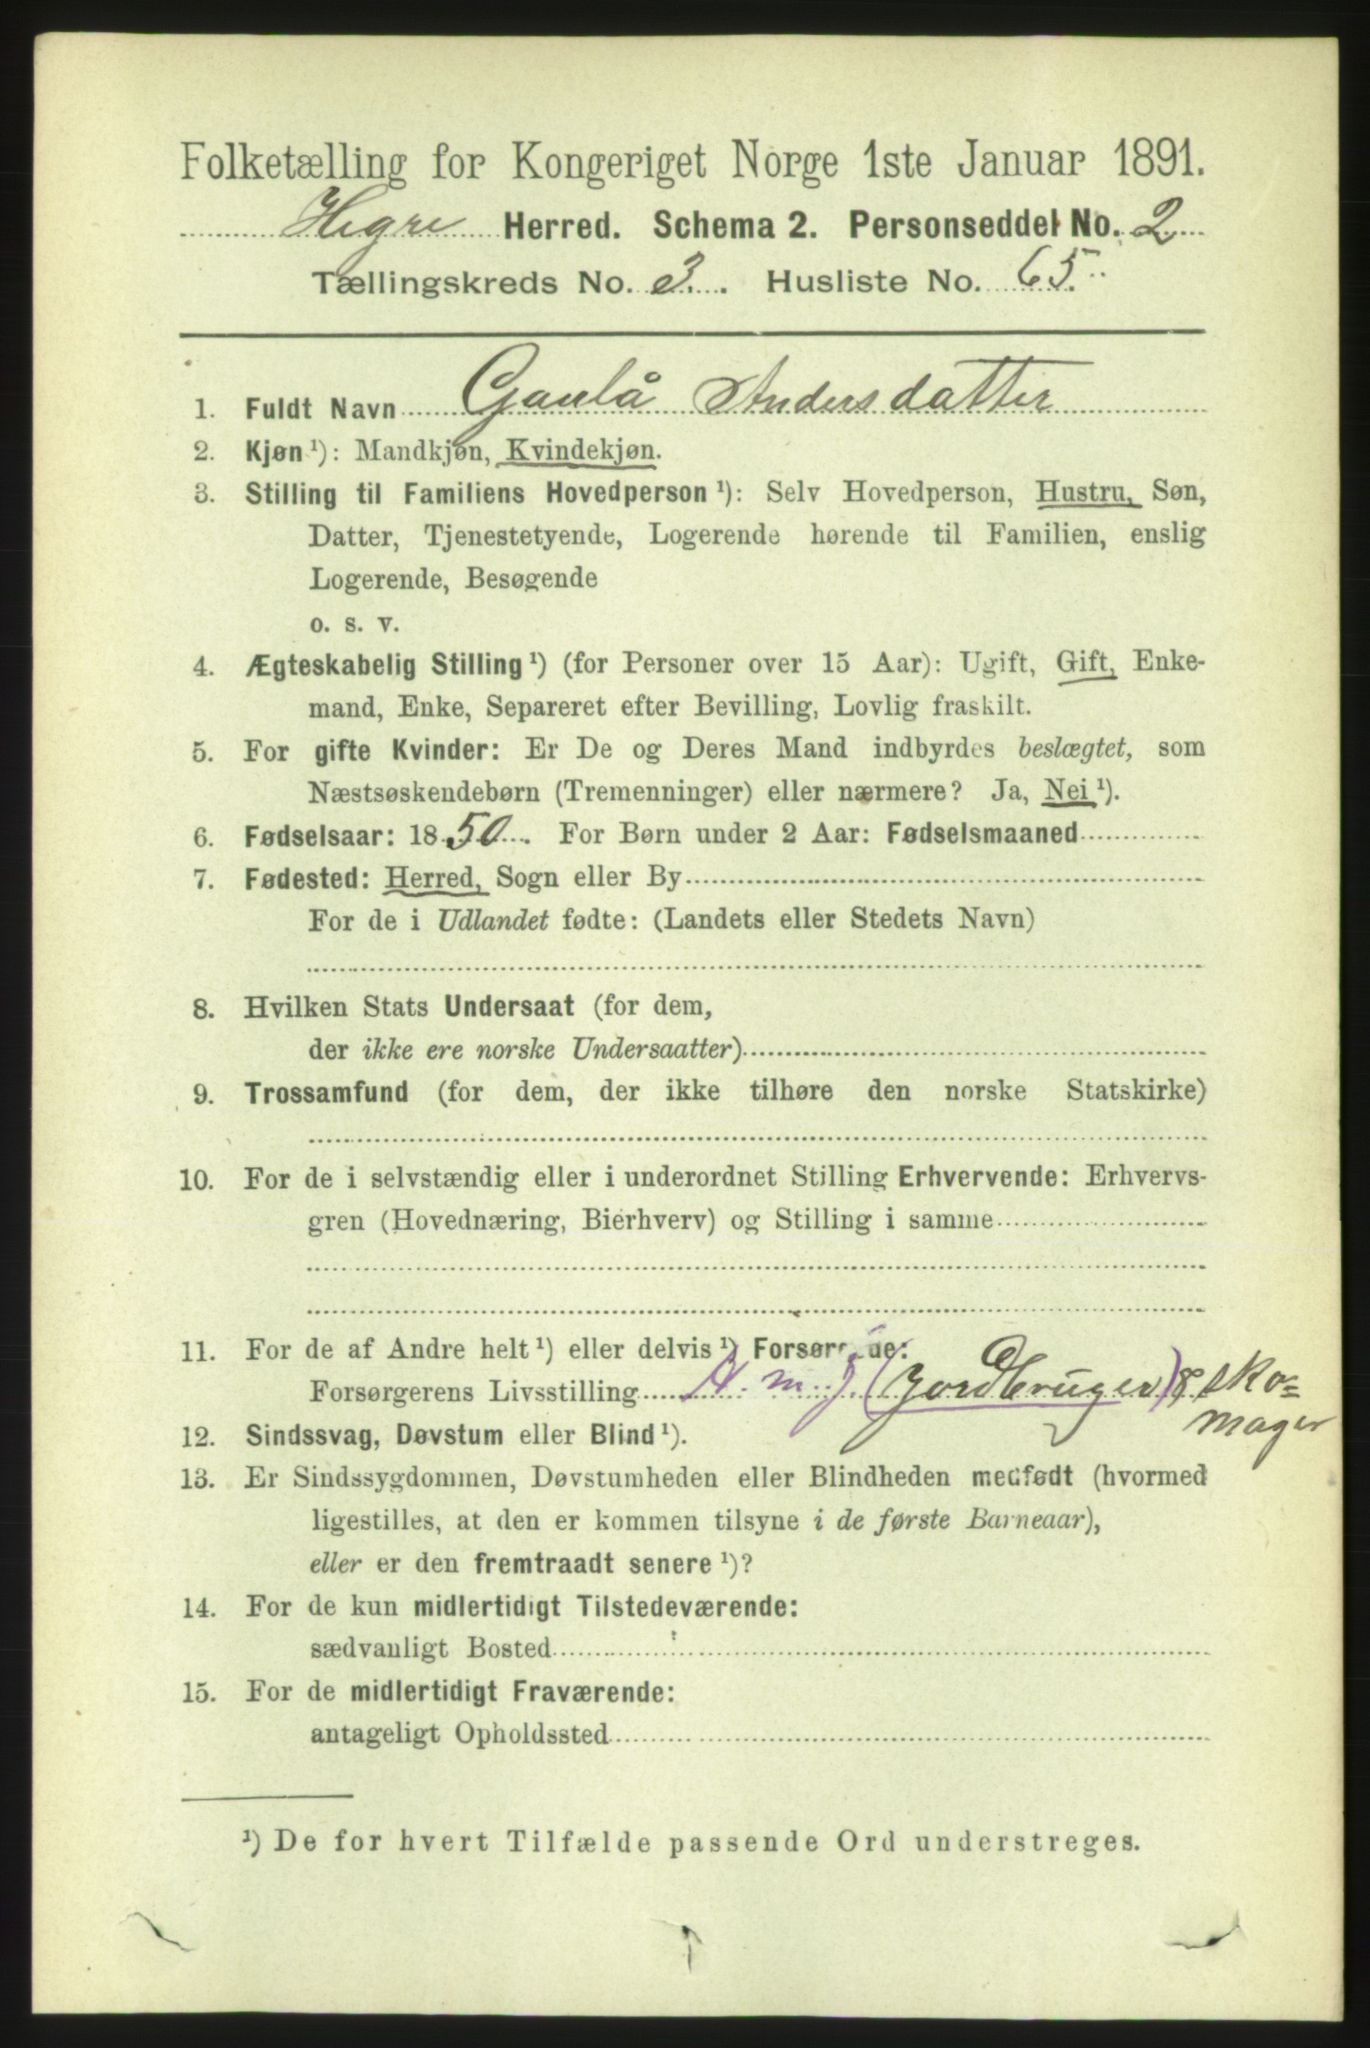 Folketælling for Kongeriget Norge 1ste Januar 1891.
Hegre Herred. Schema 2. Personseddel No. 2
Tællingskreds No. 3. Husliste No. 65.
1. Fuldt Navn Gaulå Andersdatter
2. Kjøn ¹): Mandkjøn, Kvindekjøn.
3. Stilling til Familiens Hovedperson ¹): Selv Hovedperson, Hustru, Søn,
Datter, Tjenestetyende, Logerende hørende til Familien, enslig
Logerende, Besøgende
o. s. v.
4. Ægteskabelig Stilling ¹) (for Personer over 15 Aar): Ugift, Gift, Enke-
mand, Enke, Separeret efter Bevilling, Lovlig fraskilt.
5. For gifte Kvinder: Er De og Deres Mand indbyrdes beslægtet, som
Næstsøskendebørn (Tremenninger) eller nærmere? Ja, Nei ¹).
6. Fødselsaar: 1850. For Børn under 2 Aar: Fødselsmaaned
7. Fødested: Herred, Sogn eller By
For de i Udlandet fødte: (Landets eller Stedets Navn)
8. Hvilken Stats Undersaat (for dem,
der ikke ere norske Undersaatter)
9. Trossamfund (for dem, der ikke tilhøre den norske Statskirke)
10. For de i selvstændig eller i underordnet Stilling Erhvervende: Erhvervs-
gren (Hovednæring, Bierhverv) og Stilling i samme
11. For de af Andre helt ¹) eller delvis ¹) Forsørgede:
Forsørgerens Livsstilling H. m. J. (Jordbruger) & sko=
mager
12. Sindssvag, Døvstum eller Blind ¹).
13. Er Sindssygdommen, Døvstumheden eller Blindheden medfødt (hvormed
ligestilles, at den er kommen tilsyne i de første Barneaar),
eller er den fremtraadt senere ¹)?
14. For de kun midlertidigt Tilstedeværende:
sædvanligt Bosted
15. For de midlertidigt Fraværende:
antageligt Opholdssted
¹) De for hvert Tilfælde passende Ord understreges.